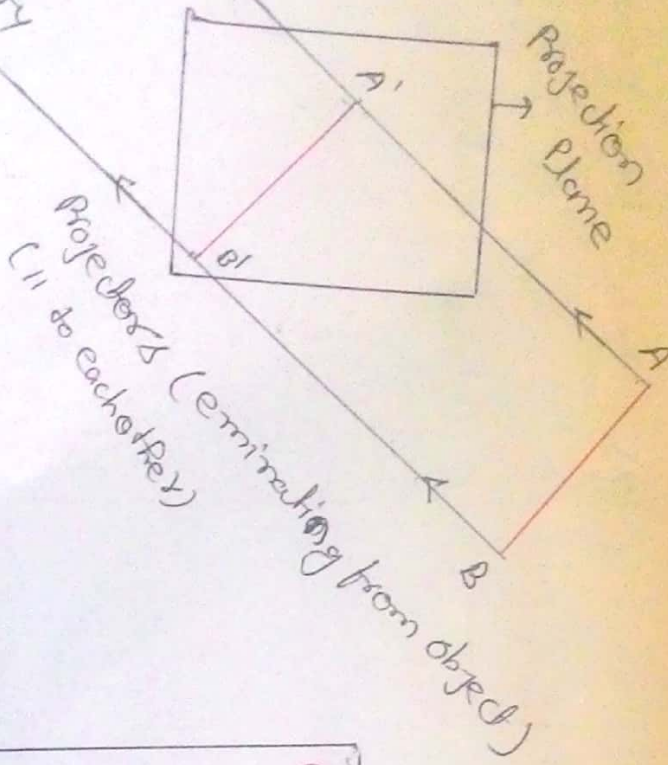 Projection
Plane
A'
B'
A
B
Projectors (eminating from object)
(11 to eachother)